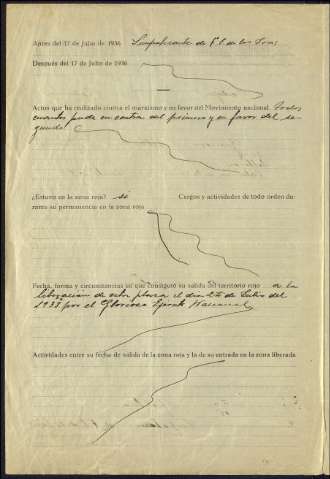 Antes del 17 de Julio de 1936 Simpatizante de F.E. de las Jons
Después del 17 de Julio de 1936
Actos que ha realizado contra el marxismo y en favor del Movimiento nacional. Todos
cuantos pude en contra del primero y en favor del se-
gundo
¿Estuvo en la zona roja? sí Cargos y actividades de todo orden du-
rante su permanencia en la zona roja
Fecha, forma y circunstancias en que consiguió su salida del territorio rojo a la
liberación de esta plaza el día de Julio del
1938 por el Glorioso Ejército Nacional
Actividades entre su fecha de salida de la zona roja y la de su entrada en la zona liberada